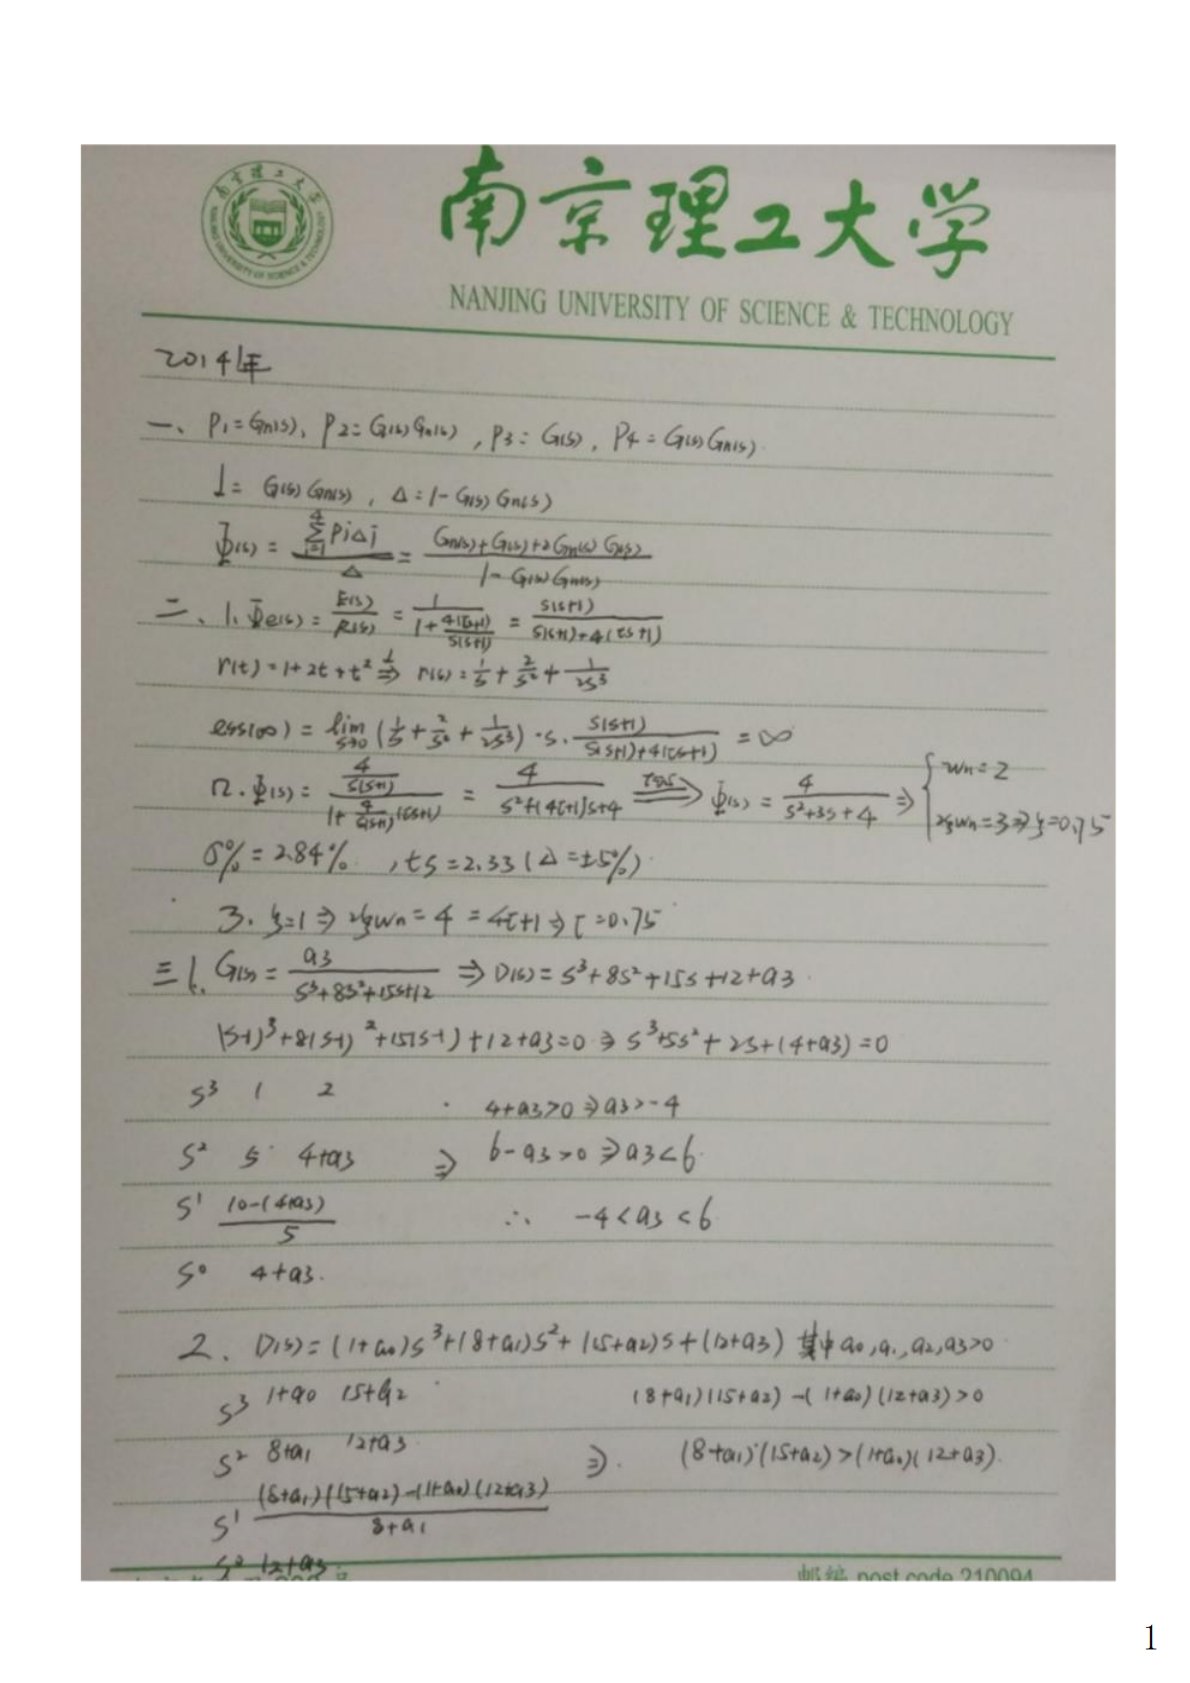 南京理工大学
NANJING UNIVERSITY OF SCIENCE & TECHNOLOGY
2014年
一、P1=Gn(s), P2=G(s)Gn(s), P3=G(s), P4=G(s)Gn(s).
L=G(s)Gn(s), Δ=1-G(s)Gn(s)
Φ(s)= \frac{\sum_{i=1}^{4} PiΔi}{Δ} = \frac{Gn(s)+G(s)+2Gn(s)G(s)}{1-G(s)Gn(s)}
二、1. Φe(s)= \frac{E(s)}{R(s)} = \frac{1}{1+\frac{4(τs+1)}{s(s+1)}} = \frac{s(s+1)}{s(s+1)+4(τs+1)}
r(t)=1+2t+t² \overset{L}{⇒} r(s)= \frac{1}{s}+\frac{2}{s²}+\frac{1}{2s³}
ess(∞)= \lim_{s→0} (\frac{1}{s}+\frac{2}{s²}+\frac{1}{2s³})·s·\frac{s(s+1)}{s(s+1)+4(τs+1)} =∞
2. Φ(s)= \frac{\frac{4}{s(s+1)}}{1+\frac{4}{s(s+1)}(τs+1)} = \frac{4}{s²+(4τ+1)s+4} \overset{τ=0.5}{⇒} Φ(s)= \frac{4}{s²+3s+4} ⇒ { wn=2
2ξwn=3⇒ξ=0.75
σ%=2.84%, ts=2.33(Δ=±5%).
3. ξ=1⇒2ξwn=4=4τ+1⇒τ=0.75
三 1. G(s)= \frac{a3}{s³+8s²+15s+12} ⇒ D(s)=s³+8s²+15s+12+a3.
(s-1)³+8(s-1)²+15(s-1)+12+a3=0⇒s³+5s²+2s+(4+a3)=0
s³ 1 2 4+a3>0⇒a3>-4
s² 5 4+a3 ⇒ 6-a3>0⇒a3<6.
s¹ \frac{10-(4+a3)}{5} ∴ -4<a3<6
s⁰ 4+a3.
2. D(s)=(1+a0)s³+(8+a1)s²+(15+a2)s+(12+a3) 其中a0,a1,a2,a3>0
s³ 1+a0 15+a2 (8+a1)(15+a2)-(1+a0)(12+a3)>0
s² 8+a1 12+a3 ⇒. (8+a1)(15+a2)>(1+a0)(12+a3).
s¹ \frac{(8+a1)(15+a2)-(1+a0)(12+a3)}{8+a1}
s⁰ 12+a3
邮编 post code 210094
1